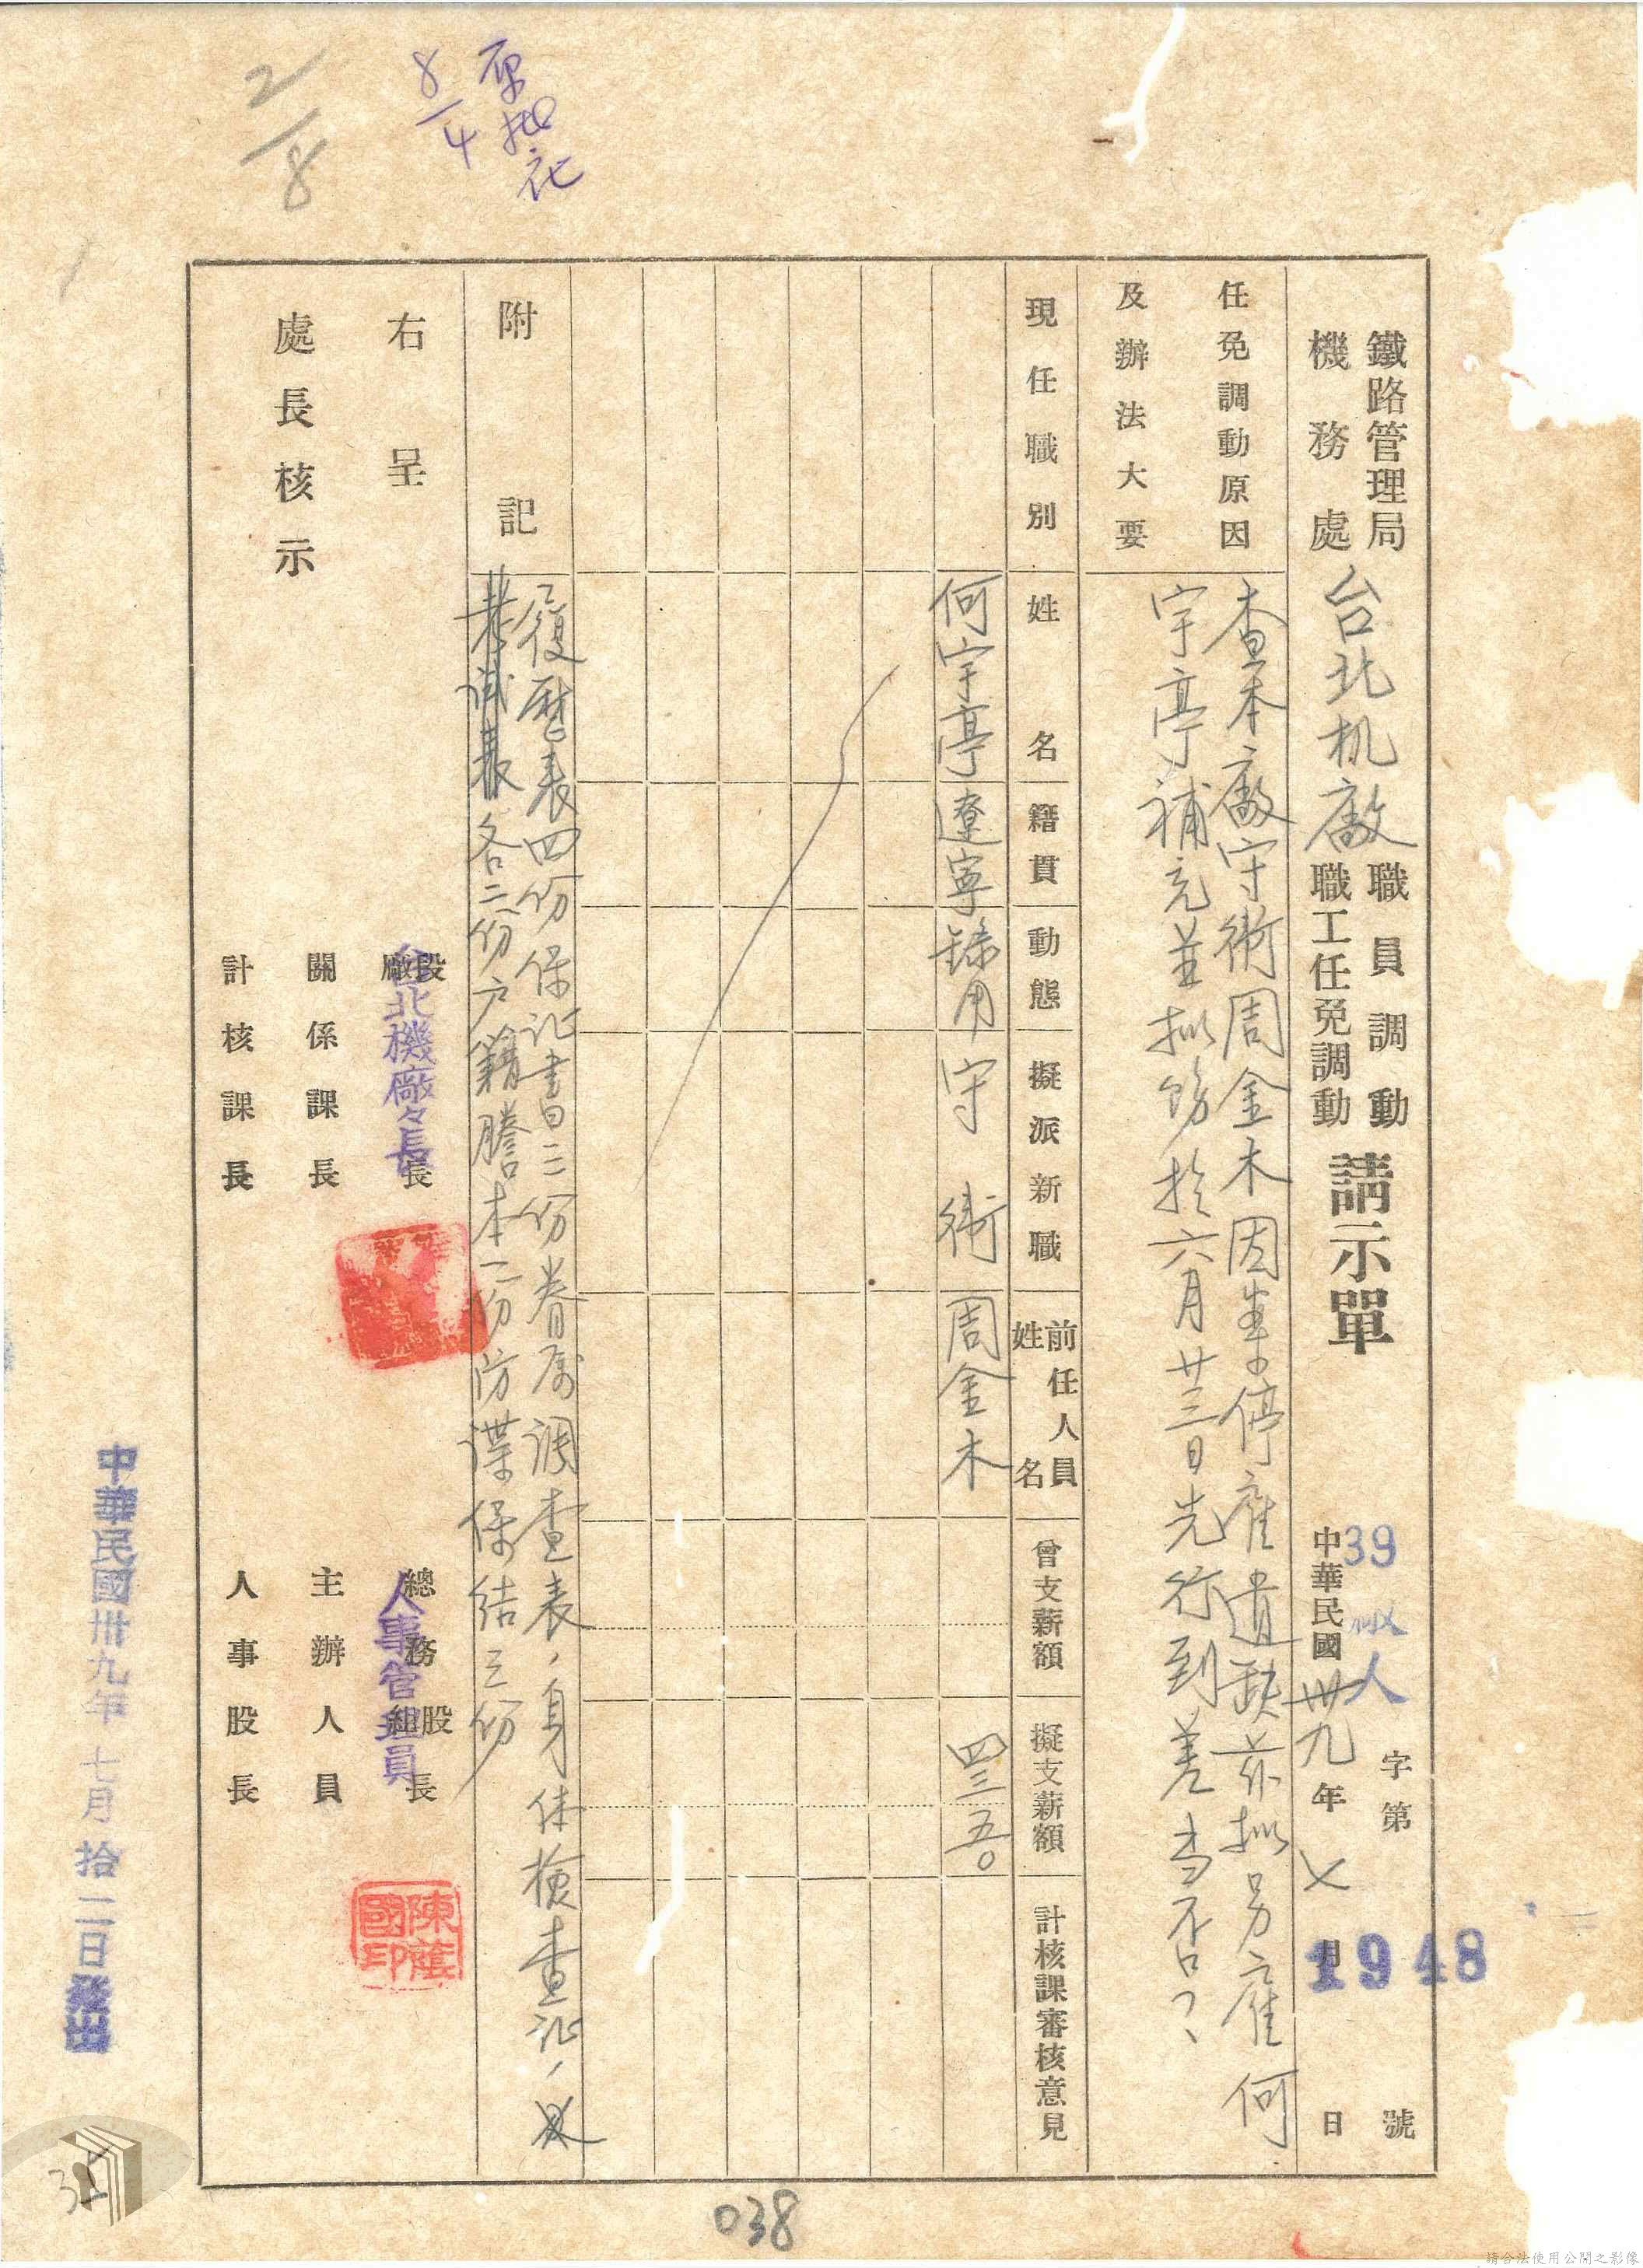 鐵路管理局
機務處
台北机廠
職員調動
職工任免調動
請示單
39
人
字第
1948
號
中華民國卅九年七月
日
任免調動原因
及辦法大要
查本廠守衛周金木因案停雇遺缺茲擬另雇何
宇亭補充並擬飭於六月廿三日先行到差當否?
現任職別
姓名
籍貫
動態
擬派新職
前任人員姓名
曾支薪額
擬支薪額
計核課審核意見
何宇亭
遼寧
錄用
守衛
周金木
四三五〇
附記
履歷表四份保証書二份眷屬調查表,身体檢查証,
考試表各二份户籍謄本一份防諜保結三份
右呈
處長核示
廠段長
台北機廠々長
關係課長
計核課長
總務組股長
人事管理員
陳蔭國印
主辦人員
人事股長
中華民國卅九年七月拾二日發出
8/4
2/8
038
35
請合法使用公開之影像